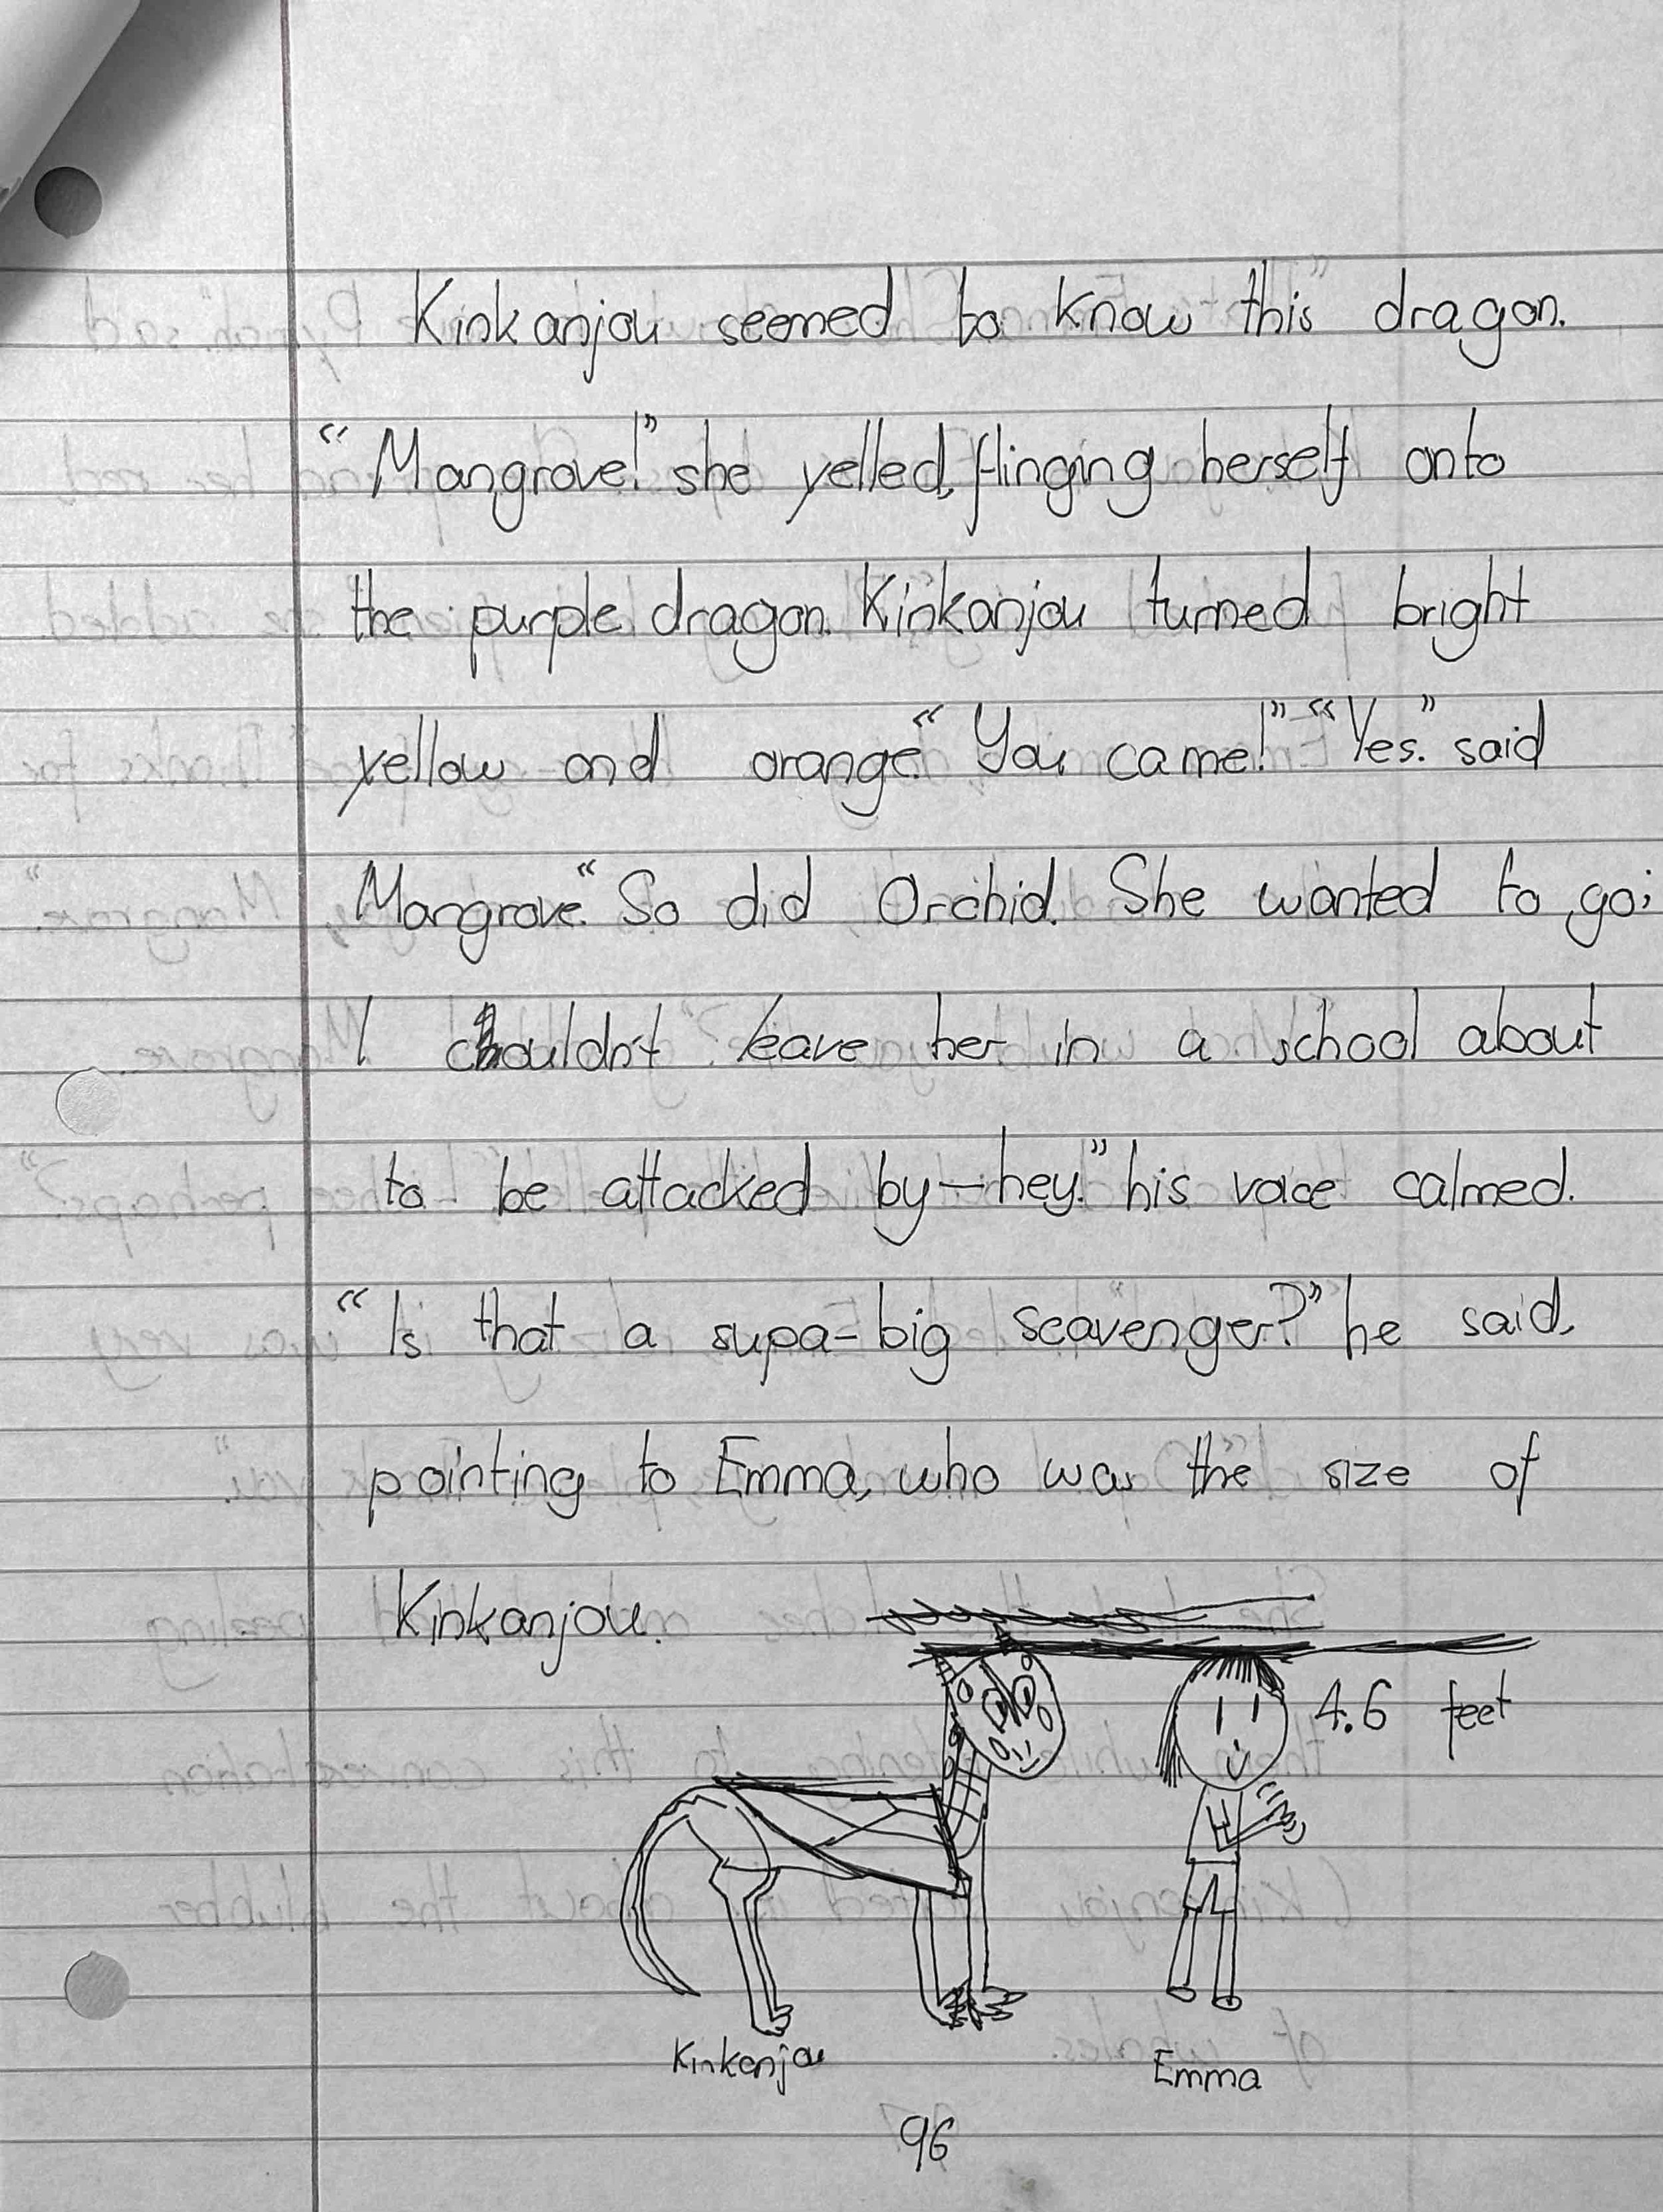 Kinkanjou seemed to know this dragon.
"Mangrove!" she yelled, flinging herself onto
the purple dragon. Kinkanjou turned bright
yellow and orange. "You came!" "Yes." said
Mangrove. "So did Orchid. She wanted to go;
I couldn't leave her in a school about
to be attacked by—hey." his voice calmed.
"Is that a supa-big scavenger?" he said,
pointing to Emma, who was the size of
Kinkanjou.
4.6 feet
Kinkanjou
Emma
96